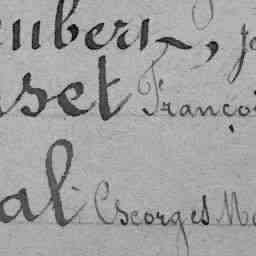 eubert, j
sset Franço
al Georges Ma